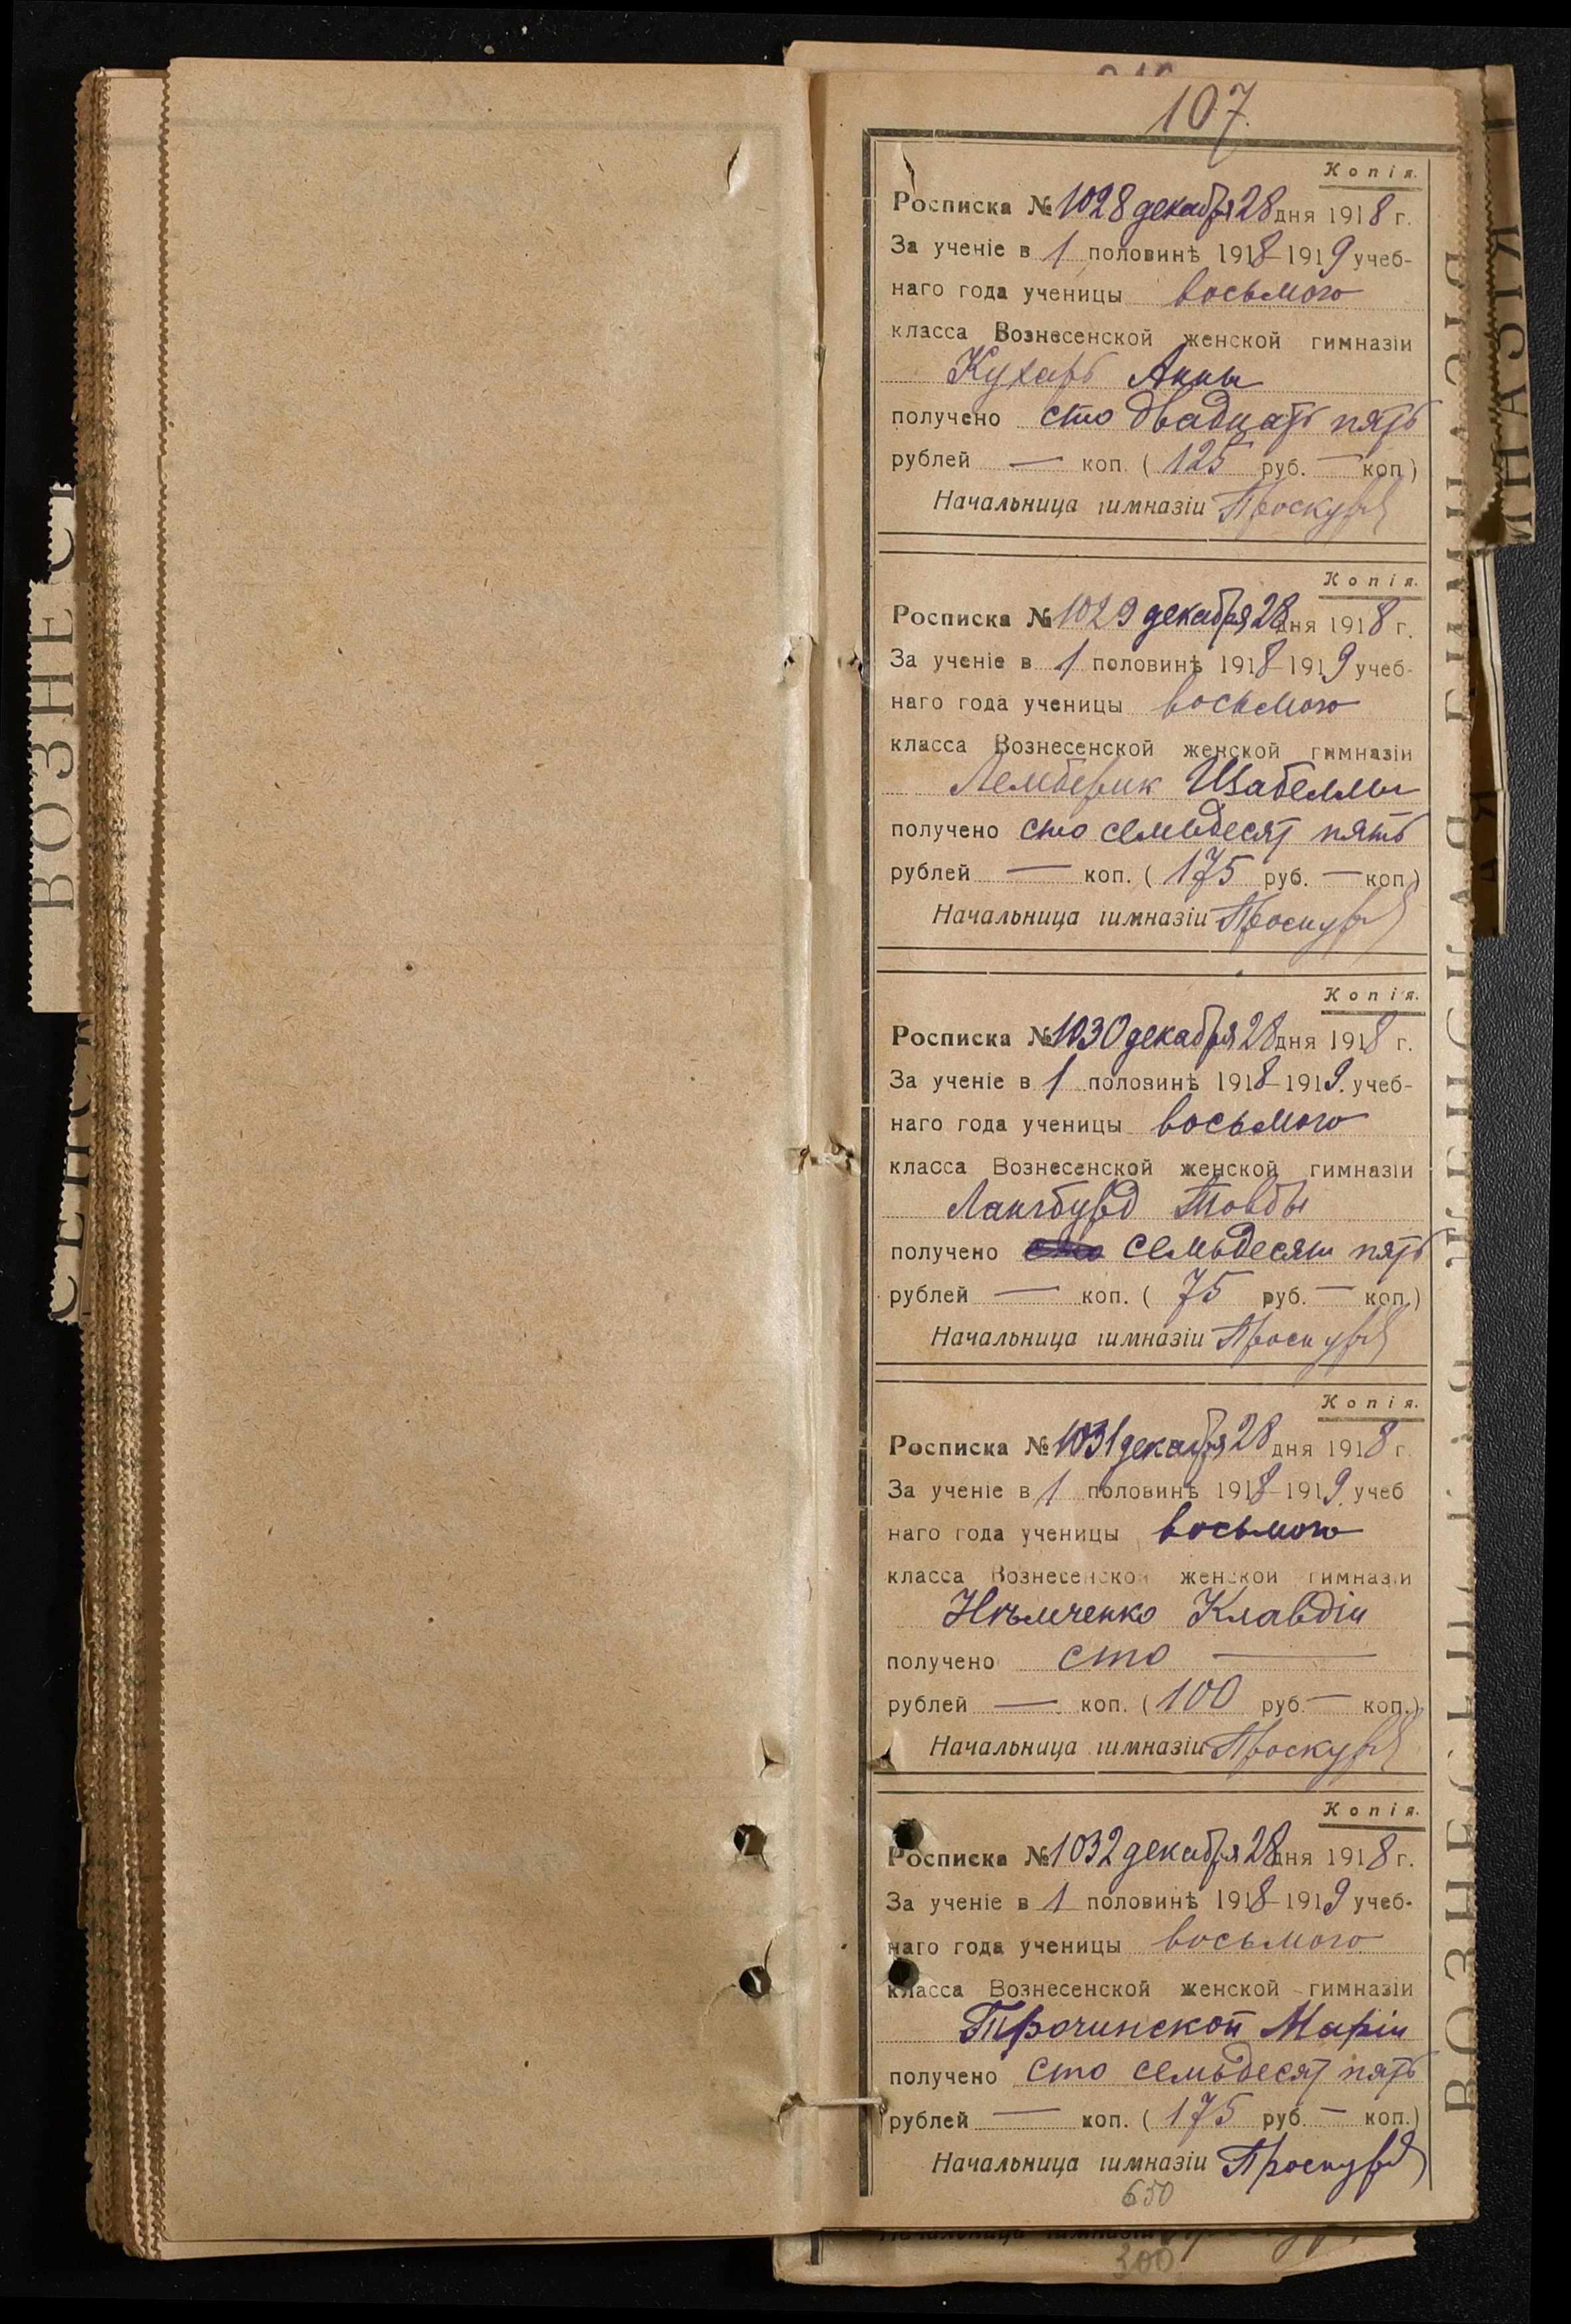 107.
Копія.
Росписка № 1028 декабря 28 дня 1918 г.
За ученіе в 1 половинѣ 1918-1919 учеб-
наго года ученицы восьмого
класса Вознесенской женской гимназіи
Кухарь Анны
получено сто двадцать пять
рублей — коп. ( 125 руб. — коп.)
Начальница гимназіи
Копія.
Росписка № 1029 декабря 28 дня 1918 г.
За ученіе в 1 половинѣ 1918-1919 учеб-
наго года ученицы восьмого
класса Вознесенской женской гимназіи
Лемберик Изабеллы
получено сто семьдесят пять
рублей — коп. ( 175 руб. — коп.)
Начальница гимназіи
Копія.
Росписка № 1030 декабря 28 дня 1918 г.
За ученіе в 1 половинѣ 1918-1919. учеб-
наго года ученицы восьмого
класса Вознесенской женской гимназіи
Товбы
получено сто семьдесят пять
рублей — коп. ( 75 руб. — коп.)
Начальница гимназіи
Копія.
Росписка № 1031 декабря 28 дня 1918 г.
За ученіе в 1 половинѣ 1918-1919. учеб
наго года ученицы восьмого
класса Вознесенской женской гимназіи
Нѣмченко Клавдіи
получено сто —
рублей — коп. ( 100 руб. — коп.)
Начальница гимназіи
Копія.
Росписка № 1032 декабря 28 дня 1918 г.
За ученіе в 1 половинѣ 1918-1919 учеб-
наго года ученицы восьмого
класса Вознесенской женской гимназіи
Трочинской Маріи
получено сто семьдесят пять
рублей — коп. ( 175 руб. — коп.)
Начальница гимназіи
650
300
ВОЗНЕС